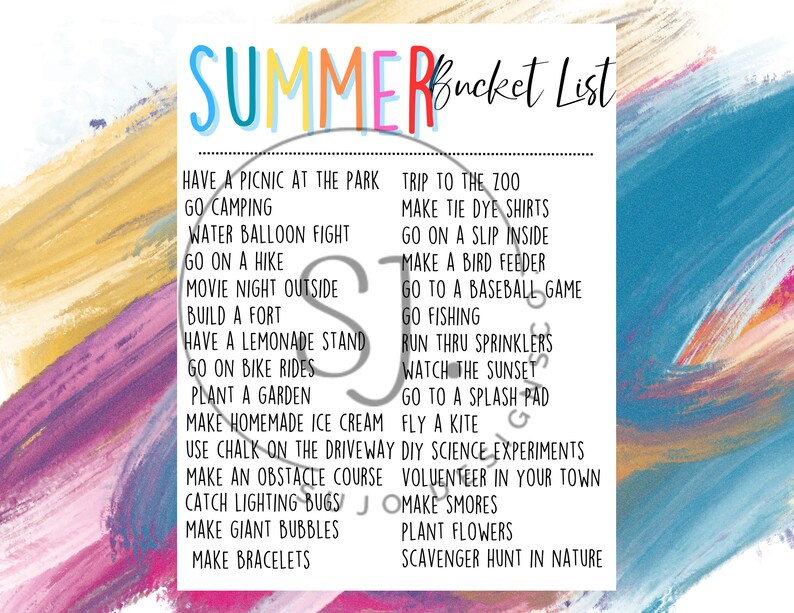 SUMMER Bucket List
HAVE A PICNIC AT THE PARK
GO CAMPING
WATER BALLOON FIGHT
GO ON A HIKE
MOVIE NIGHT OUTSIDE
BUILD A FORT
HAVE A LEMONADE STAND
GO ON BIKE RIDES
PLANT A GARDEN
MAKE HOMEMADE ICE CREAM
USE CHALK ON THE DRIVEWAY
MAKE AN OBSTACLE COURSE
CATCH LIGHTING BUGS
MAKE GIANT BUBBLES
MAKE BRACELETS
TRIP TO THE ZOO
MAKE TIE DYE SHIRTS
GO ON A SLIP INSIDE
MAKE A BIRD FEEDER
GO TO A BASEBALL GAME
GO FISHING
RUN THRU SPRINKLERS
WATCH THE SUNSET
GO TO A SPLASH PAD
FLY A KITE
DIY SCIENCE EXPERIMENTS
VOLUNTEER IN YOUR TOWN
MAKE SMORES
PLANT FLOWERS
SCAVENGER HUNT IN NATURE
SJ.
SUJO DESIGNSCO.